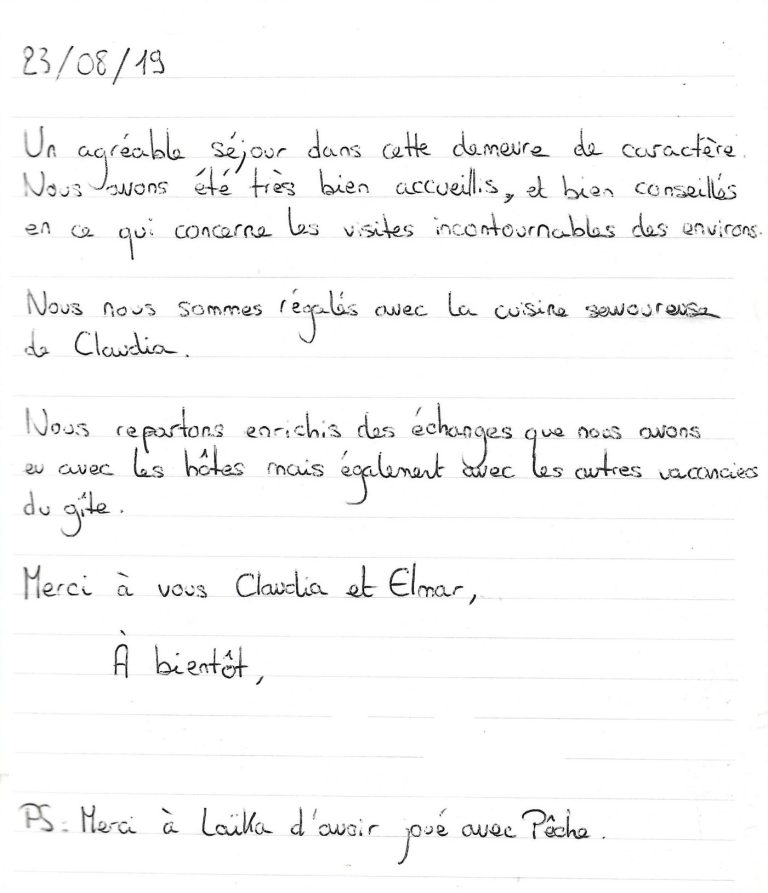 23/08/19
Un agréable séjour dans cette demeure de caractère.
Nous avons été très bien accueillis, et bien conseillés
en ce qui concerne les visites incontournables des environs.
Nous nous sommes régalés avec la cuisine savoureuse
de Claudia.
Nous repartons enrichis des échanges que nous avons
eu avec les hôtes mais également avec les autres vacanciers
du gîte.
Merci à vous Claudia et Elmar,
À bientôt,
PS : Merci à Laïka d'avoir joué avec Pêche.